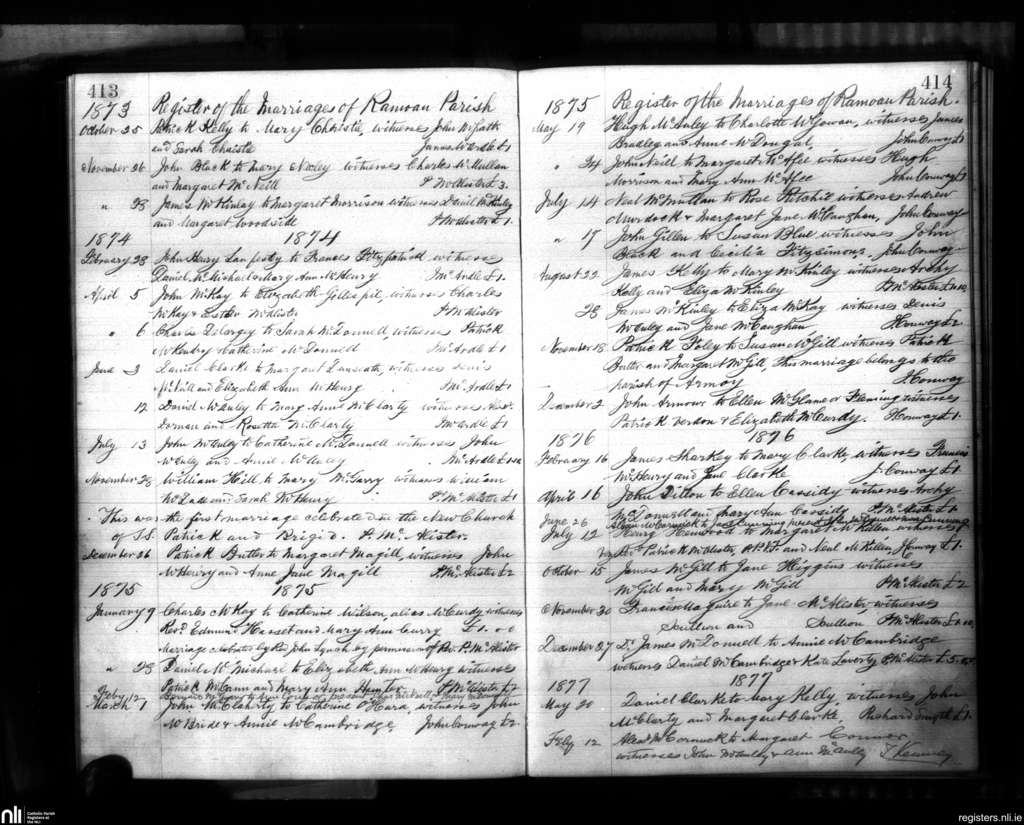 413
1873 Register of the Marriages of Ramoan Parish
October 25 Patrick Kelly to Mary Christie, witnesses John
and Sarah Christie James McArdle £1
November 26 John Black to Mary witnesses Charles McMullan
and Margaret McNeill P McAlister £3.
" 28 James McKinlay to Margaret Morrison witnesses Daniel McKinley
and Margaret Woodside P McAlister £1.
1874 1874
February 28 John Henry to Frances Fitzpatrick witnesses
Daniel McMichael & Mary Ann McHenry McArdle £1.
April 5 John McKay to Elizabeth Gillespie, witnesses Charles
McKay & Esther McAlister P McAlister
" 6 Charles Delargy to Sarah McDonnell, witnesses Patrick
McHenry Catherine McDonnell McArdle £1
June 3 Daniel Clarke to Margaret, witnesses Denis
McNeill and Elizabeth Ann McHenry McArdle £1
12 David McAuley to Mary Anne McClarty witnesses
and Rosetta McClarty McArdle £1
July 13 John McAuley to Catherine McDonnell witnesses John
McAuley and Annie McAuley McArdle
November 28 William Hill to Mary McGarry witness William
and Sarah McHenry P. McAlister £1
This was the first marriage celebrated in the New Church
of S.S. Patrick and Brigid. P. McAlister.
December 26 Patrick Butler to Margaret Magill, witnesses John
McHenry and Anne Jane Magill P. McAlister £2
1875 1875
January 9 Charles McKay to Catherine Wilson, alias McCurdy witnesses
Revd. Edmund Hasset and Mary Ann Curry £1. 0 0
Marriage celebrated by Rev John Lynch by permission of Rev. P. McAlister
" 28 Daniel McMichael to Elizabeth Ann McHenry witnesses
Patrick McCann and Mary Ann Hunter P McAlister £2
Feby 12
March 1 John McClarty to Catherine O'Hara, witnesses John
McBride & Annie McCambridge John Conway £2.
414
1875 Register of the Marriages of Ramoan Parish.
May 19 Hugh McAuley to Charlotte McGowan, witnesses James
Bradley and Anne McDougal, John Conway £1
" 24 John Neill to Margaret McAfee witnesses Hugh
Morrison and Mary Ann McAfee John Conway £1
July 14 Neal McMullan to Rose Ritchie witnesses Andrew
Murdock & Margaret Jane McCaughan, John Conway
" 17 John Gillen to Susan Blue, witnesses John
Black and Cecilia Fitzsimons, John Conway
August 22 James Kelly to Mary McKinley witnesses Archy
Kelly and Eliza McKinley P. McAlister
28 James McKinley to Eliza McKay witnesses Denis
McAuley and Jane McCaughan J Conway £2
November 18 Patrick Foley to Susan McGill witnesses Patrick
Butler and Margaret McGill, This marriage belongs to the
parish of Armoy J Conway
December 2 John Armour to Ellen McGlame or Fleming witnesses
Patrick Verdon & Elizabeth McCurdy. J Conway £1.
1876 1876
February 16 James Sharkey to Mary Clarke, witnesses Francis
McHenry and Jane Clarke J Conway £1.
April 16 John Ditton to Ellen Cassidy witnesses Archy
McDonnell and Mary Ann Cassidy P McAlister £1
June 26
July 12 Henry to Margaret McKillen witnesses
Very Revd Patrick McAlister, P.P. V.F. and Neal McKillen J Conway £1.
October 15 James McGill to Jane Higgins witnesses
McGill and Mary McGill P. McAlister £2
November 30 Francis Maguire to Jane McAlister, witnesses
Scullion and Scullion P. McAlister
December 27 Dr. James McDonnell to Annie McCambridge
witnesses Daniel McCambridge & Kate Laverty P. McAlister £5
1877 1877
May 20 Daniel Clarke to Mary Kelly, witnesses John
McClarty and Margaret Clarke. Richard Smyth £1.
Feby 12 Alexd McCormick to Margaret Connor
witnesses John McAuley & Ann McAuley
nli
Catholic Parish
Registers at
the NLI
registers.nli.ie